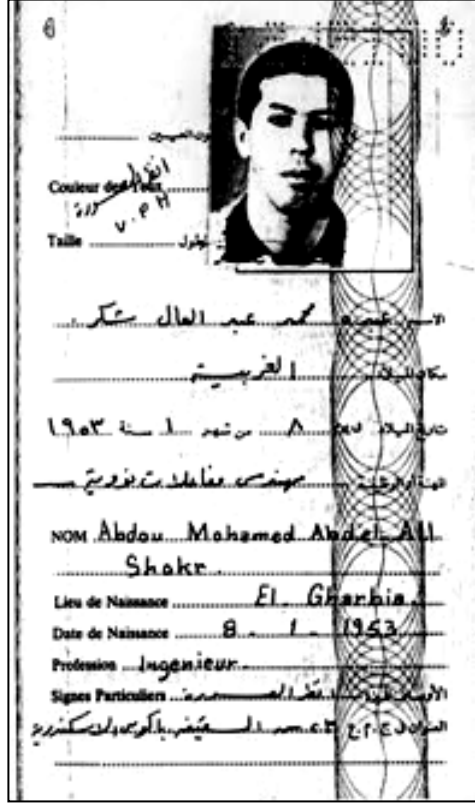 6
لون العينين
Couleur des Yeux
انظر الصورة
V. P H
Taille
الطول
الاسم عبده محمد عبد العال شكر
مكان الميلاد الغربية
تاريخ الميلاد ٨ من شهر ١ سنة ١٩٥٣
المهنة أو الوظيفة مهندس مفاعلات نووية
NOM Abdou Mohamed Abdel All
Shokr.
Lieu de Naissance El. Gharbia.
Date de Naissance 8 - 1 - 1953
Profession Ingenieur.
Signes Particuliers انظر الصورة